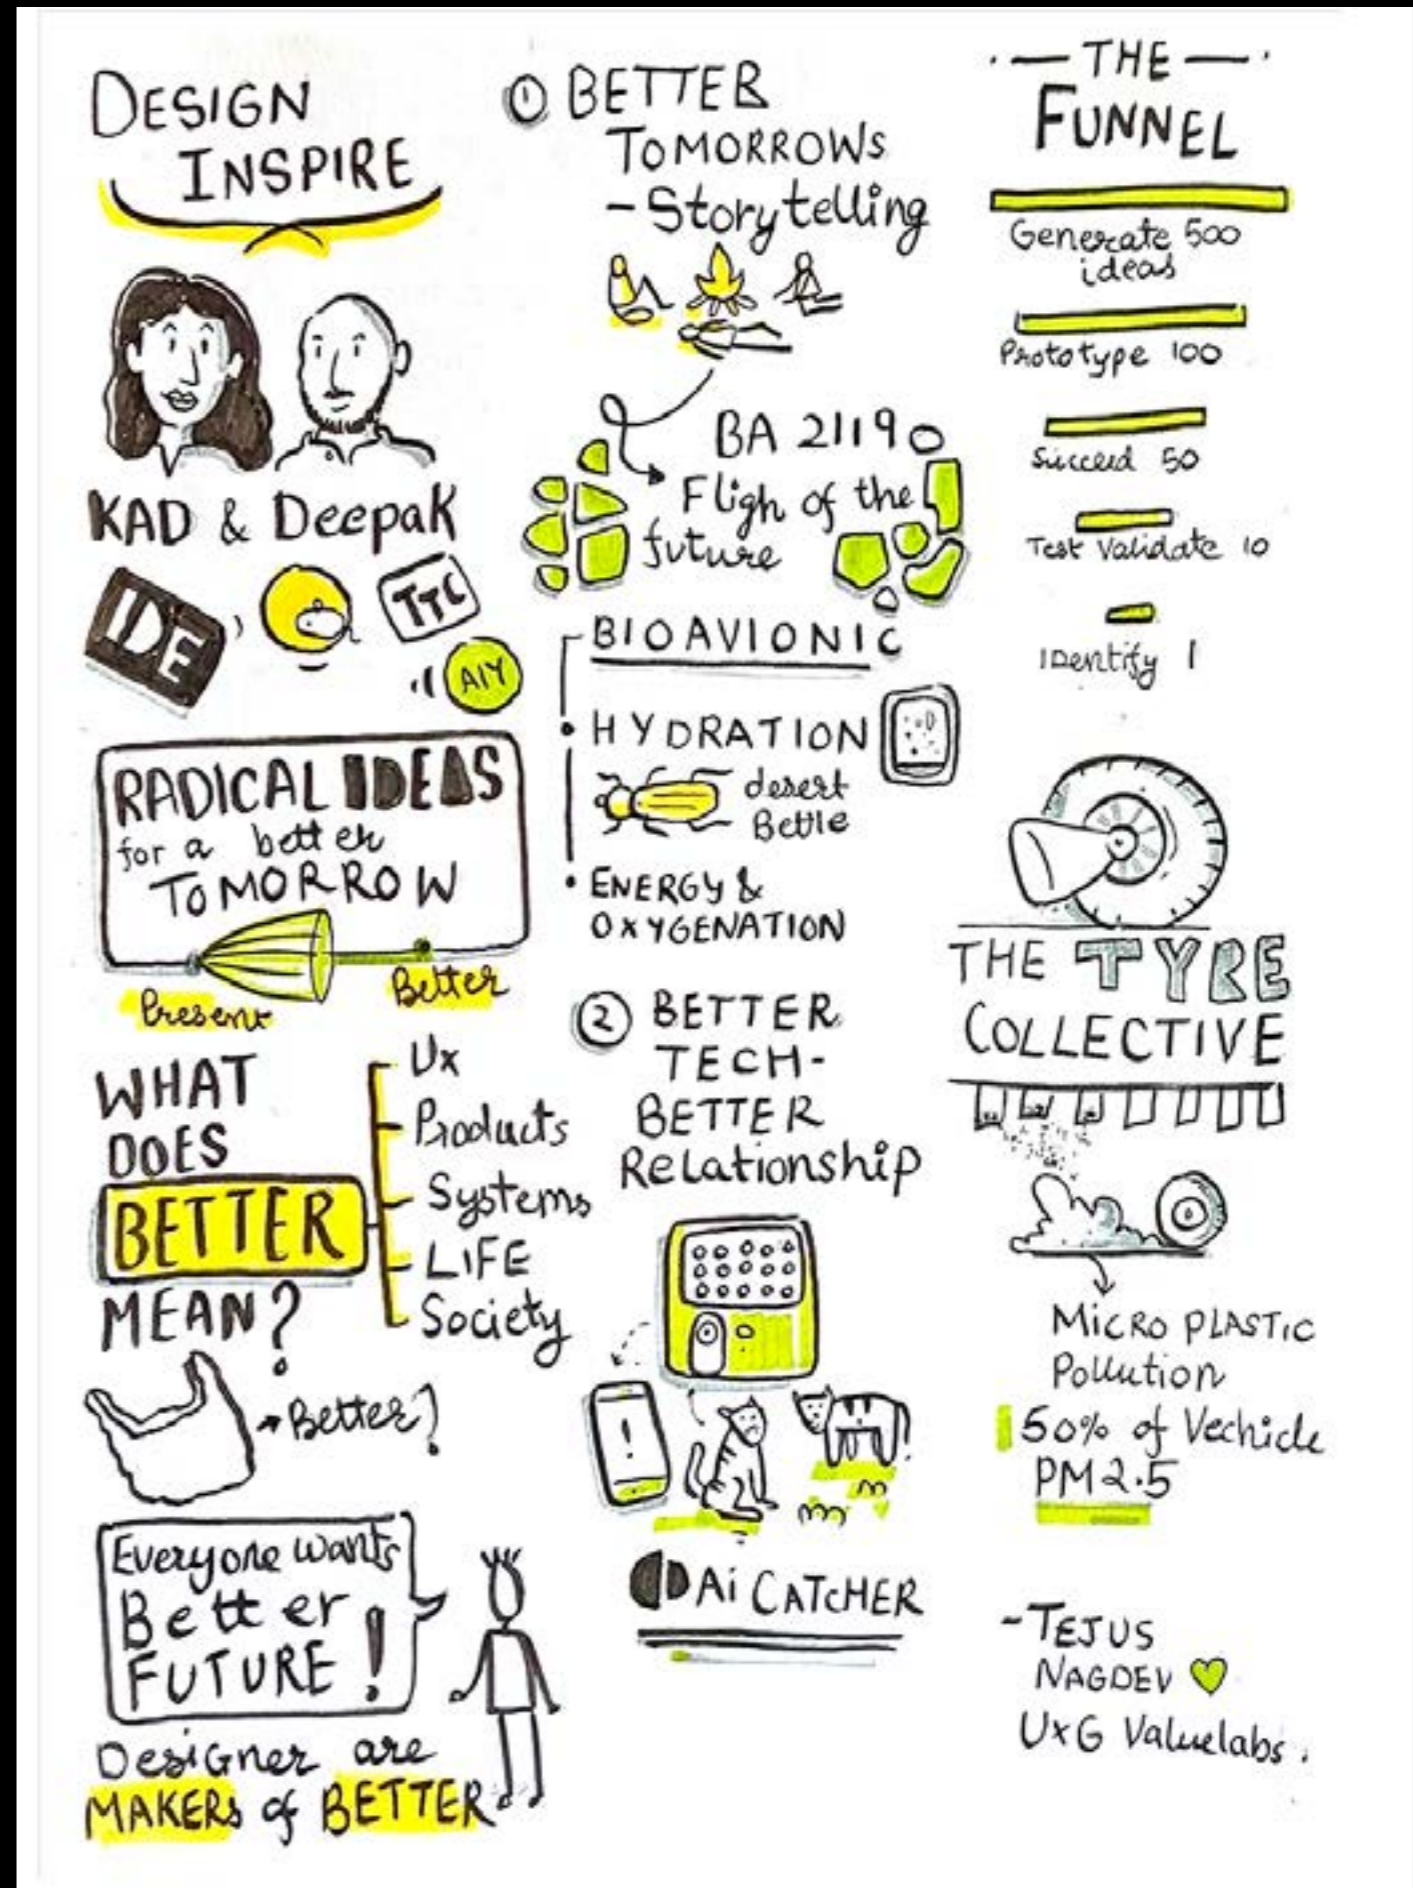 DESIGN
INSPIRE
KAD & Deepak
IDE
TTC
AIY
RADICAL IDEAS
for a better
TOMORROW
Present
Better
WHAT
DOES
BETTER
MEAN?
Ux
Products
Systems
LIFE
Society
Better?
Everyone wants
Better
FUTURE!
Designer are
MAKERs of BETTER
1 BETTER
TOMORROWS
- Storytelling
BA 2119
Fligh of the
future
BIOAVIONIC
• HYDRATION
desert
Bettle
• ENERGY &
OXYGENATION
2 BETTER
TECH-
BETTER
Relationship
!
Ai CATCHER
THE
FUNNEL
Generate 500
ideas
Prototype 100
Succeed 50
Test Validate 10
IDentify 1
THE TYRE
COLLECTIVE
MICRO PLASTIC
Pollution
50% of Vechicle
PM2.5
- TEJUS
NAGDEV
UxG Valuelabs.